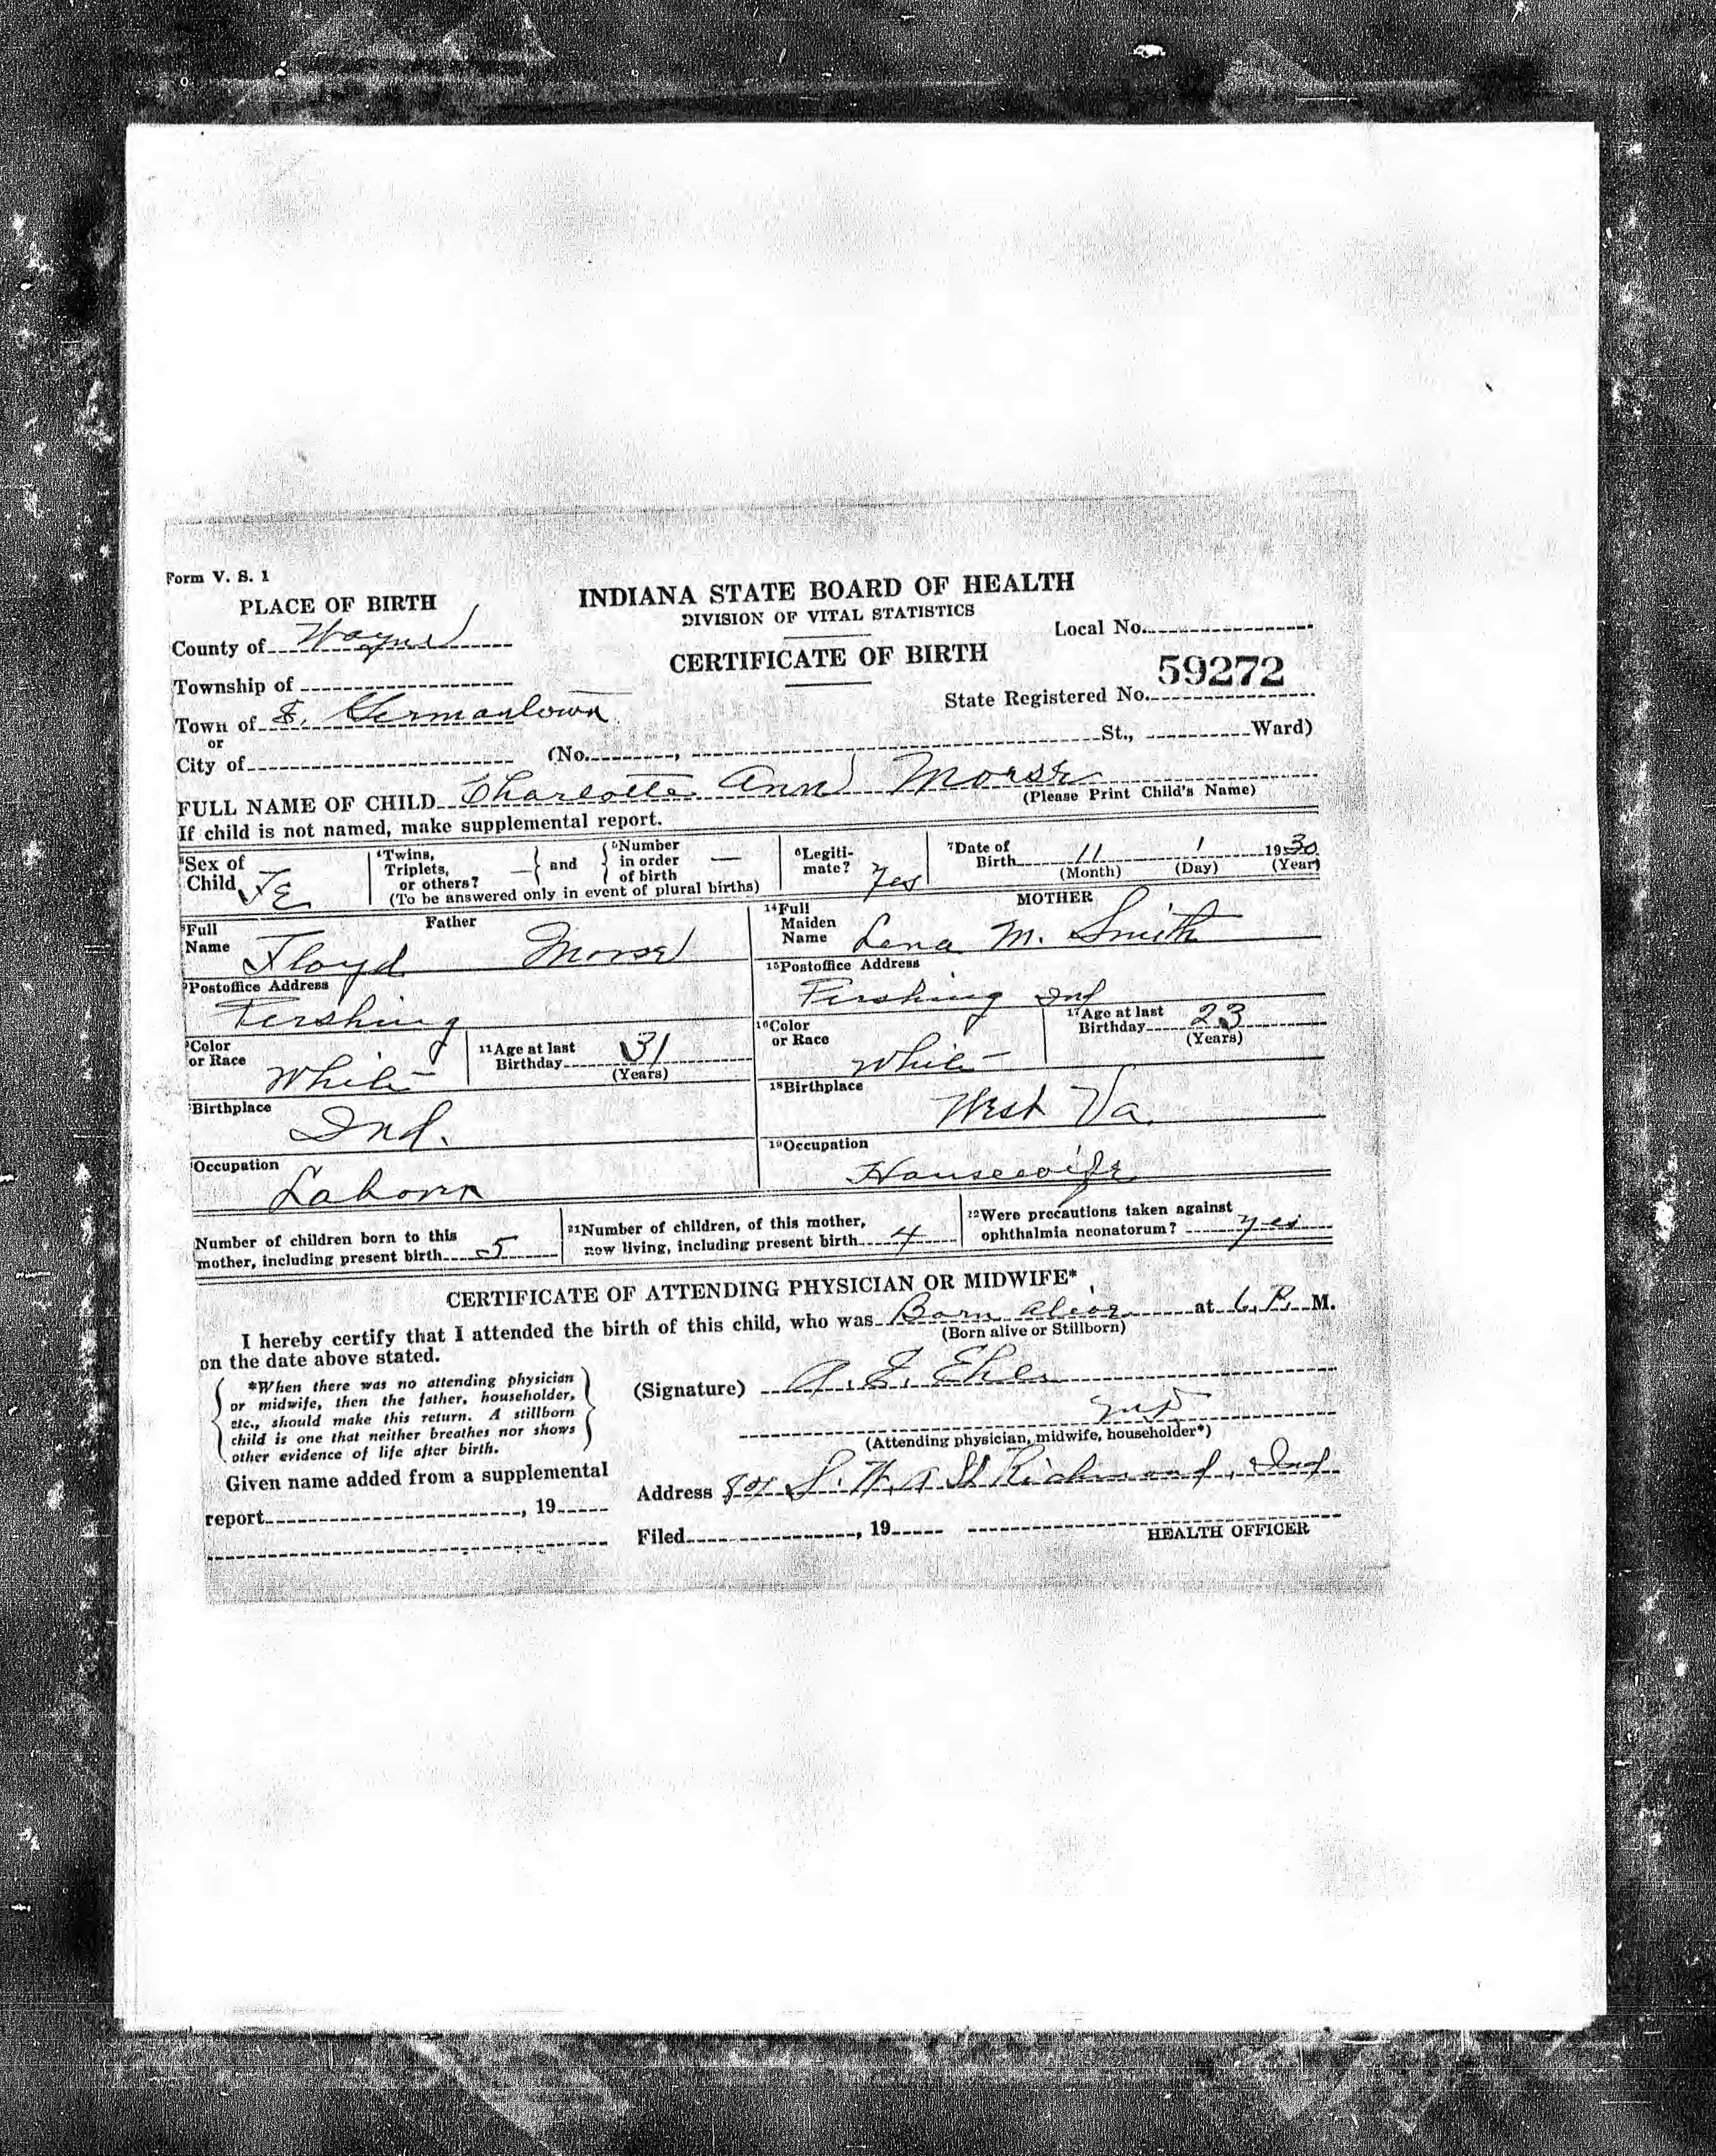 Form V. S. 1
PLACE OF BIRTH
INDIANA STATE BOARD OF HEALTH
DIVISION OF VITAL STATISTICS
County of Wayne
Local No.
CERTIFICATE OF BIRTH
59272
Township of
State Registered No.
Town of E. Germantown
or
City of (No. , St., Ward)
FULL NAME OF CHILD Charlotte Ann Morse
(Please Print Child's Name)
If child is not named, make supplemental report.
Sex of Child FE
4Twins, Triplets, or others? — } and { 5Number in order of birth —
(To be answered only in event of plural births)
6Legitimate? Yes
7Date of Birth 11 1 1930
(Month) (Day) (Year)
Father
Full Name Floyd Morse
MOTHER
14Full Maiden Name Lena M. Smith
Postoffice Address
Pershing
15Postoffice Address
Pershing Ind
Color or Race White
11Age at last Birthday 31
(Years)
16Color or Race White
17Age at last Birthday 23
(Years)
Birthplace
Ind.
18Birthplace
West Va.
Occupation
19Occupation
Housewife
Number of children born to this mother, including present birth 5
21Number of children, of this mother, now living, including present birth 4
22Were precautions taken against ophthalmia neonatorum? yes
CERTIFICATE OF ATTENDING PHYSICIAN OR MIDWIFE*
I hereby certify that I attended the birth of this child, who was Born alive at 6 P. M.
(Born alive or Stillborn)
on the date above stated.
*When there was no attending physician
or midwife, then the father, householder,
etc., should make this return. A stillborn
child is one that neither breathes nor shows
other evidence of life after birth.
(Signature)
MD
(Attending physician, midwife, householder*)
Given name added from a supplemental
report , 19
Address St Richmond, Ind
Filed , 19
HEALTH OFFICER